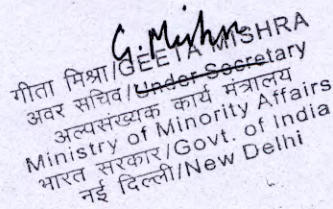 G. Mishra
गीता मिश्रा/GEETA MISHRA
अवर सचिव/Under Secretary
अल्पसंख्यक कार्य मंत्रालय
Ministry of Minority Affairs
भारत सरकार/Govt. of India
नई दिल्ली/New Delhi